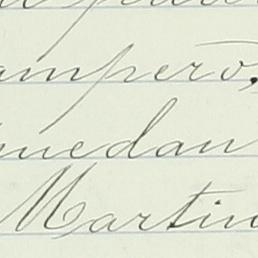 ampero,
uedan
Martin